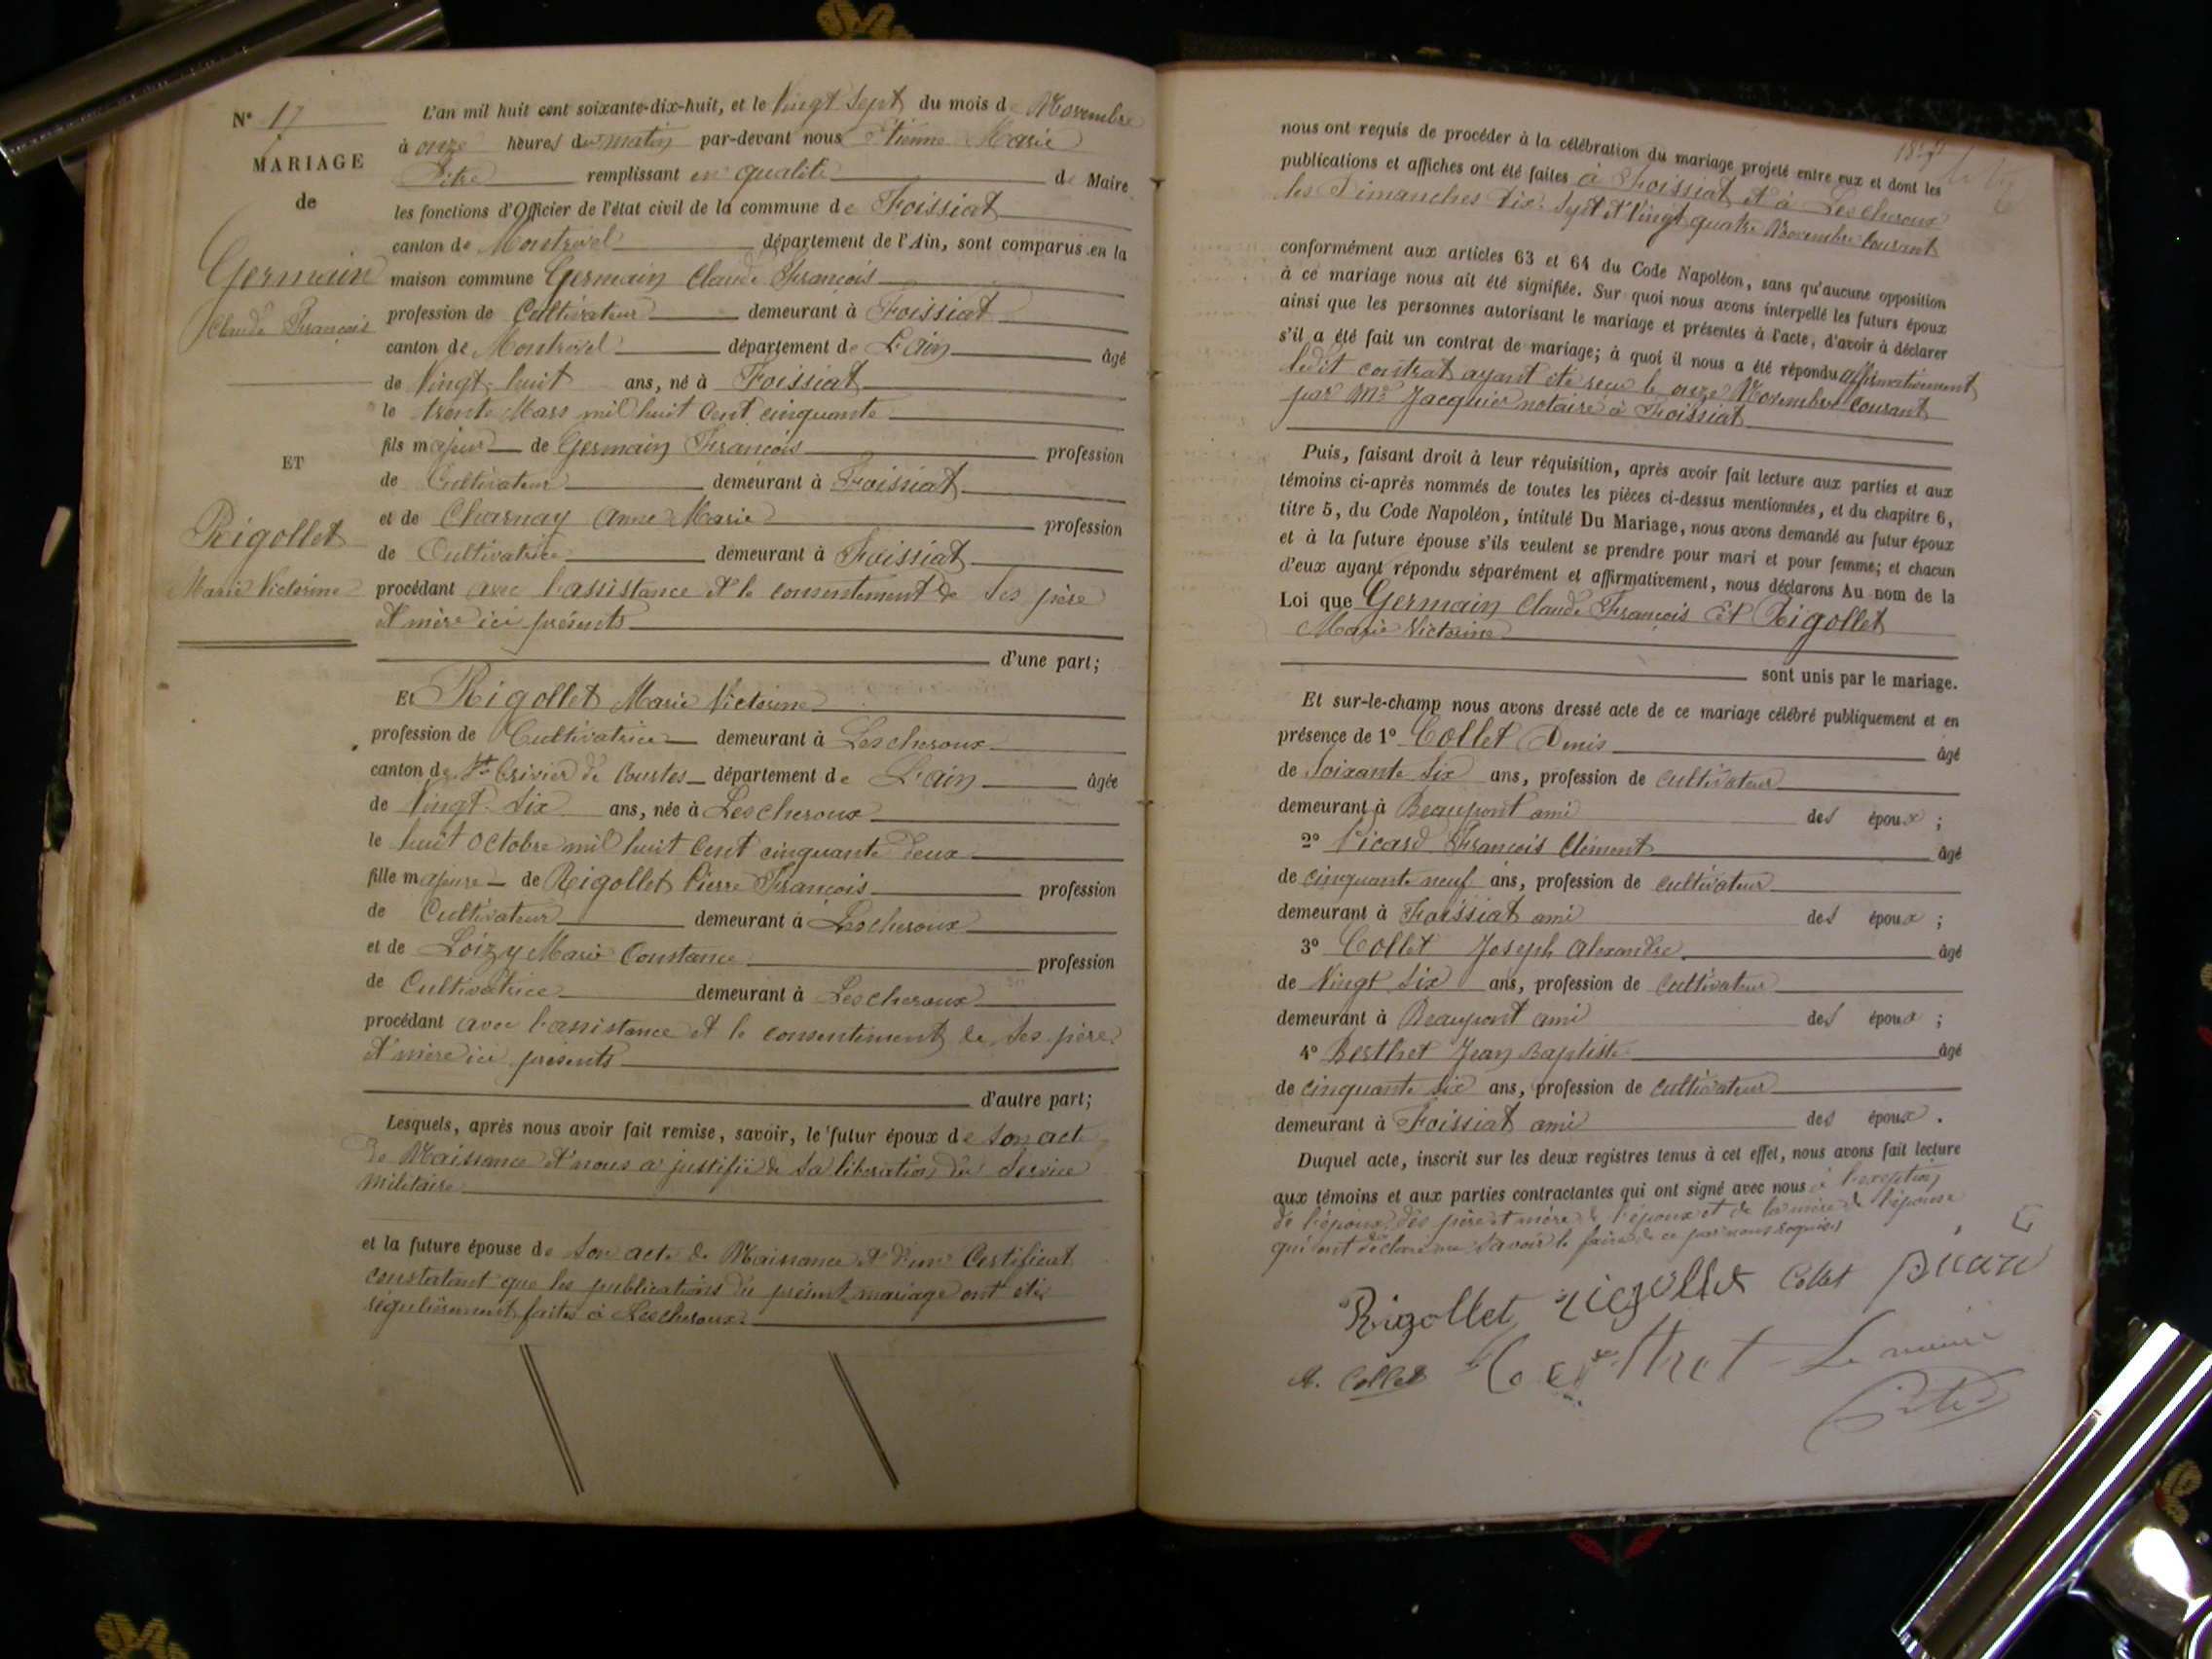 N° 17
MARIAGE
de
Germain
Claude François
ET
Rigollet
Marie Victorine
L'an mil huit cent soixante-dix-huit, et le Vingt Sept du mois de Novembre
à onze heures du matin par-devant nous Etienne Marie
Pitre remplissant en qualité de Maire
les fonctions d'Officier de l'état civil de la commune de Foissiat
canton de Montrevel département de l'Ain, sont comparus en la
maison commune Germain Claude François
profession de Cultivateur demeurant à Foissiat
canton de Montrevel département de L'Ain âgé
de Vingt-huit ans, né à Foissiat
le trente Mars mil huit Cent cinquante
fils majeur de Germain François profession
de Cultivateur demeurant à Foissiat
et de Charnay Anne Marie profession
de Cultivatrice demeurant à Foissiat
procédant avec l'assistance et le consentement de ses père
et mère ici présents
d'une part;
Et Rigollet Marie Victorine
profession de Cultivatrice demeurant à Lescheroux
canton de St Trivier de Courtes département de L'ain âgée
de Vingt-Six ans, née à Lescheroux
le huit Octobre mil huit Cent cinquante deux
fille majeure de Rigollet Pierre François profession
de Cultivateur demeurant à Lescheroux
et de Loizy Marie Constance profession
de Cultivatrice demeurant à Lescheroux
procédant avec l'assistance et le consentement de ses père
et mère ici présents
d'autre part;
Lesquels, après nous avoir fait remise, savoir, le futur époux de son acte
de Naissance et nous a justifié de sa libération du Service
Militaire
et la future épouse de son acte de Naissance et d'un Certificat
constatant que les publications du présent mariage ont été
régulièrement faites à Lescheroux.
nous ont requis de procéder à la célébration du mariage projeté entre eux et dont les
publications et affiches ont été faites à Foissiat et à Lescheroux
les Dimanches Dix-Sept et Vingt quatre Novembre Courant
conformément aux articles 63 et 64 du Code Napoléon, sans qu'aucune opposition
à ce mariage nous ait été signifiée. Sur quoi nous avons interpellé les futurs époux
ainsi que les personnes autorisant le mariage et présentes à l'acte, d'avoir à déclarer
s'il a été fait un contrat de mariage; à quoi il nous a été répondu affirmativement
ledit contrat ayant été reçu le onze Novembre Courant
par Me Jacquier notaire à Foissiat
Puis, faisant droit à leur réquisition, après avoir fait lecture aux parties et aux
témoins ci-après nommés de toutes les pièces ci-dessus mentionnées, et du chapitre 6,
titre 5, du Code Napoléon, intitulé Du Mariage, nous avons demandé au futur époux
et à la future épouse s'ils veulent se prendre pour mari et pour femme; et chacun
d'eux ayant répondu séparément et affirmativement, nous déclarons Au nom de la
Loi que Germain Claude François Et Rigollet
Marie Victorine
sont unis par le mariage.
Et sur-le-champ nous avons dressé acte de ce mariage célébré publiquement et en
présence de 1° Collet Denis âgé
de Soixante Six ans, profession de cultivateur
demeurant à Beaupont ami des époux ;
2° Picard François Clément âgé
de cinquante neuf ans, profession de cultivateur
demeurant à Foissiat ami des époux ;
3° Collet Joseph Alexandre âgé
de Vingt Six ans, profession de cultivateur
demeurant à Beaupont ami des époux ;
4° Berthet Jean Baptiste âgé
de cinquante six ans, profession de cultivateur
demeurant à Foissiat ami des époux .
Duquel acte, inscrit sur les deux registres tenus à cet effet, nous avons fait lecture
aux témoins et aux parties contractantes qui ont signé avec nous à l'exception
de l'époux, des père et mère de l'époux et de la mère de l'épouse
qui ont déclaré ne savoir le faire de ce par nous requis
Rigollet rigollet Collet picard
A. Collet Berthet Le maire
Pitre